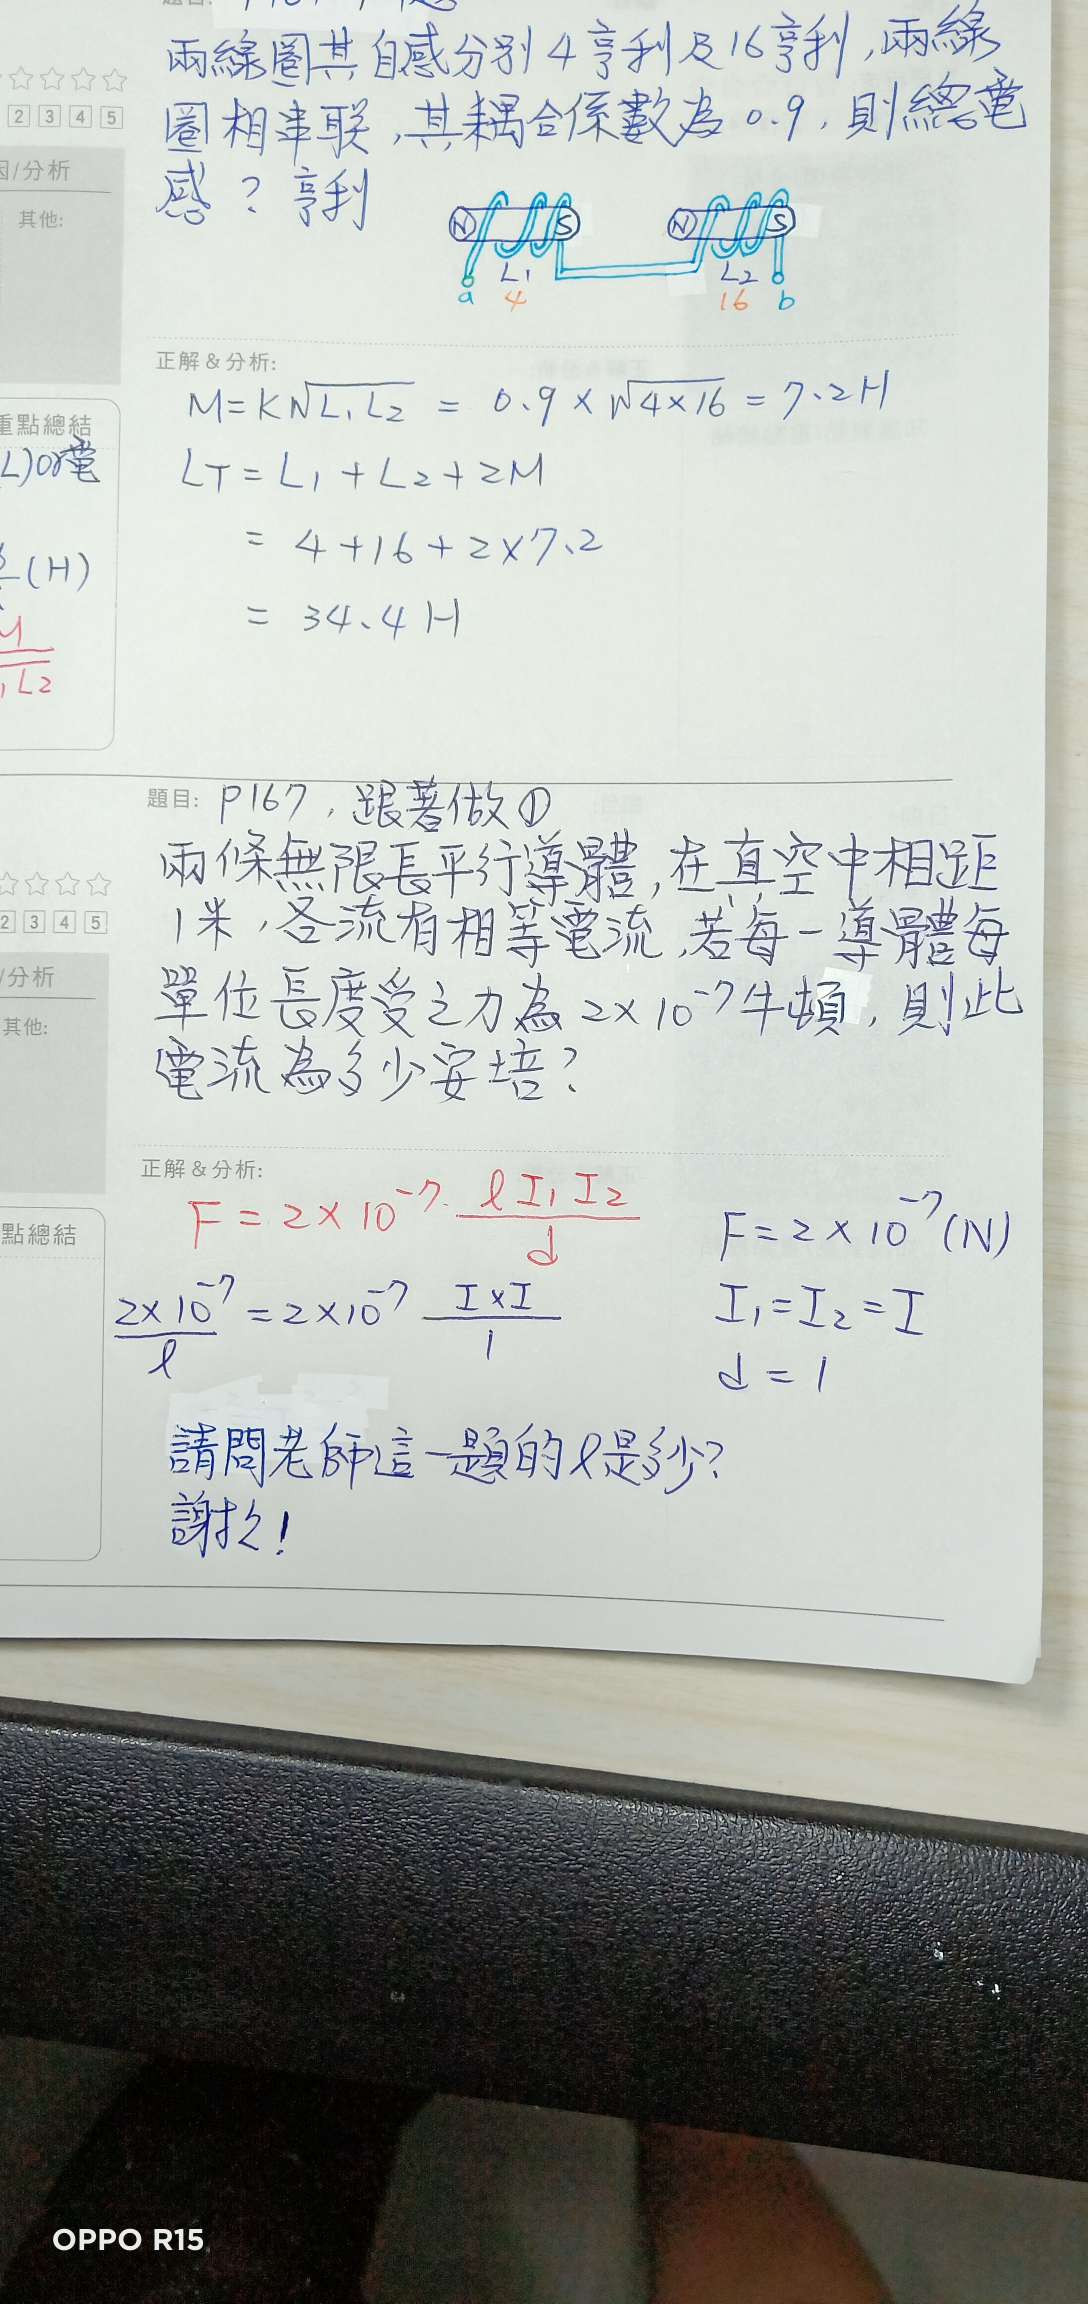 兩線圈其自感分別4亨利及16亨利,兩線
圈相串联,其耦合係數為0.9,則總電
感?亨利
2 3 4 5
因/分析
其他:
N S N S
L1 L2
a 4 16 b
正解&分析:
M=K√L1L2 = 0.9×√4×16 = 7.2H
重點總結
L)or電
LT=L1+L2+2M
= 4+16+2×7.2
(H)
= 34.4H
M
L2
題目: P167,跟著做①
兩條無限長平行導體,在真空中相距
1米,各流有相等電流,若每一導體每
單位長度受之力為2×10⁻⁷牛頓,則此
電流為多少安培?
2 3 4 5
/分析
其他:
正解&分析:
F=2×10⁻⁷·ℓI1I2/d
F=2×10⁻⁷(N)
點總結
2×10⁻⁷/ℓ=2×10⁻⁷ I×I/1
I1=I2=I
d=1
請問老師這一題的ℓ是多少?
謝謝!
OPPO R15